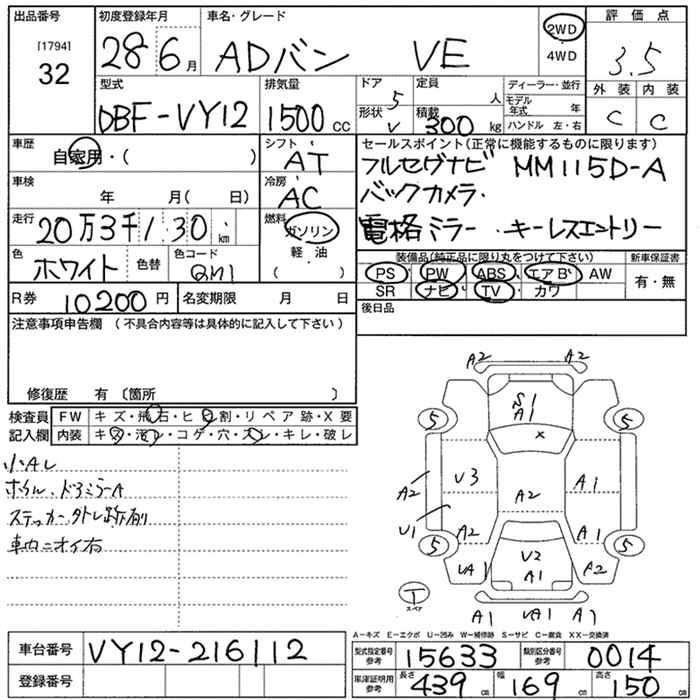 出品番号 初度登録年月 車名・グレード 評価点
[1794]
32
28 6月 ADバン VE
2WD
・
4WD
3.5
外装 内装
C C
型式 排気量 ドア 定員 ディーラー・並行
DBF-VY12 1500cc 5 人 モデル年式 年
形状 積載
V 300kg ハンドル 左・右
車歴 シフト セールスポイント(正常に機能するものに限ります)
自家用・( ) AT フルセグナビ MM115D-A
車検 冷房 バックカメラ・
年 月( 日) AC
走行 燃料 電格ミラー・キーレスエントリー
20万3千1,30 km ガソリン
軽・油
( )
色 色替 色コード
ホワイト QM1
装備品(純正品に限り丸をつけて下さい) 新車保証書
PS PW ABS エアB AW 有・無
SR ナビ TV カワ
R券 10200円 名変期限 月 日
後日品
注意事項申告欄(不具合内容等は具体的に記入して下さい)
修復歴 有〔箇所 〕
検査員記入欄 FW キズ・飛石・ヒビ割・リペア跡・X要
内装 キズ・汚レ・コゲ・穴・スレ・キレ・破レ
小AU
ホイル・ドアミラーA
ステッカー、外トレ跡有
車内ニオイ有
A2 A2
S1
A1
5 5
×
A2 U3 A2 A1
U1 A2 A1
5 5
UA1 U2 A2
A1
T
スペア
A1 UA1 A1
A-キズ E-エクボ U-凹み W-補修跡 S-サビ C-腐食 XX-交換済
車台番号 VY12-216112
登録番号
型式指定番号 参考 15633 類別区分番号 参考 0014
車庫証明用 参考 長さ 439cm 幅 169cm 高さ 150cm